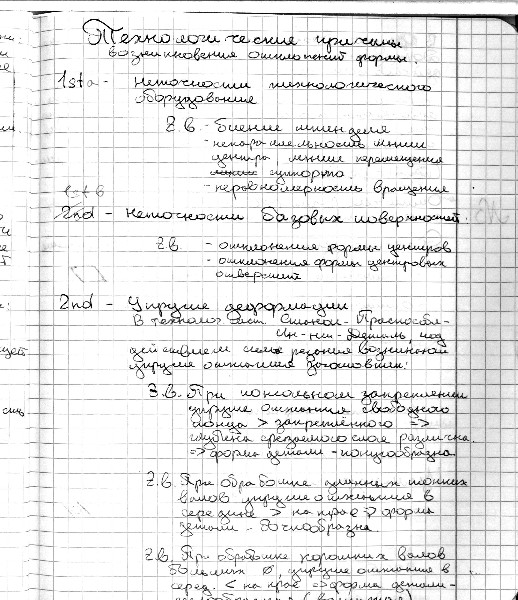 Технологические причины
возникновения отклонений формы.
1st a - Неточности технологического
оборудования
Z.B. - биение шпинделя
- непараллельность линии
центра, линии перемещения
суппорта.
- неравномерность вращения
1st b
2nd - Неточности базовых поверхностей.
Z.B. - отклонения формы центров
- отклонения формы центровых
отверстий
2nd - Упругие деформации
В технолог. сист. Станок - Приспособл-
Ин-нт - Деталь, под
действием силы резания возникают
упругие отжатия заготовки:
Z.B. При консольном закреплении
упругие отжатия свободного
конца > закреплённого =>
глубина срезаемого слоя различна.
=> форма детали - конусообразна
Z.B. При обработке длинных тонких
валов упругие отжатия в
середине > на крае => форма
детали - бочкообразна.
Z.B. При обработке коротких валов
больших Ø, упругие отжатия в
серед. < на крае => форма детали -